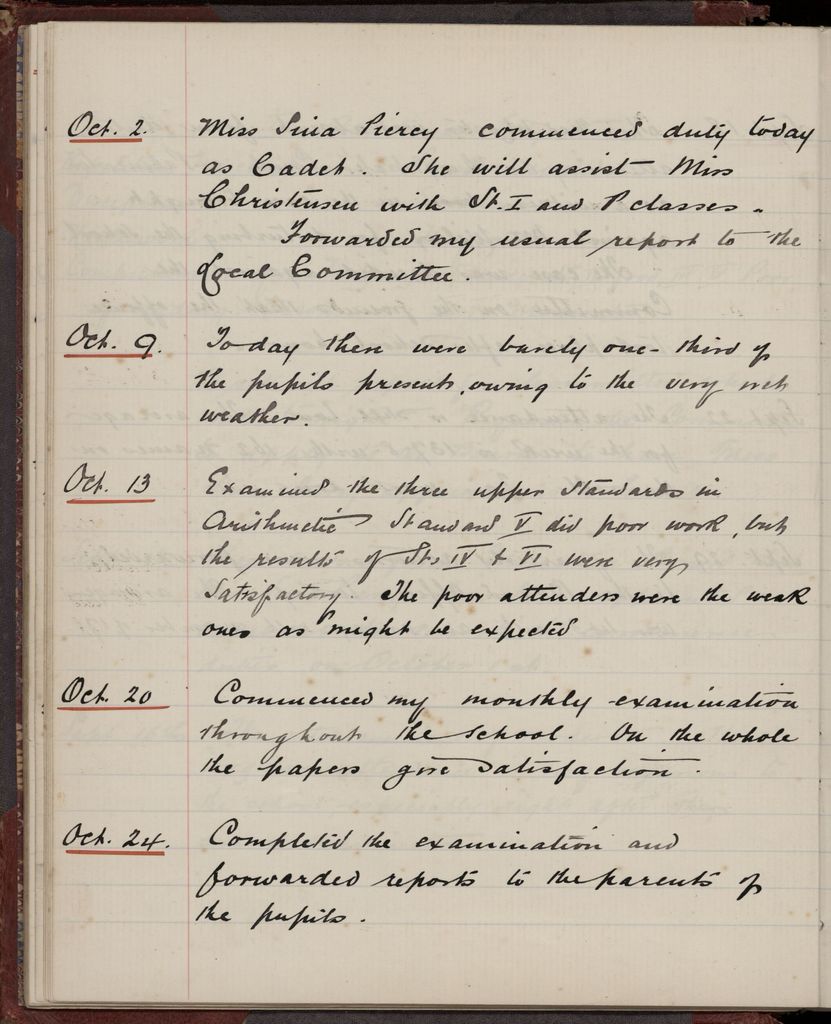 Oct. 2. Miss Sina Piercy commenced duty today
as Cadet. She will assist Miss
Christensen with St. I and P classes.
Forwarded my usual report to the
Local Committee.
Oct. 9. Today there were barely one-third of
the pupils present, owing to the very wet
weather.
Oct. 13 Examined the three upper Standards in
Arithmetic Standard V did poor work, but
the results of Sts IV & VI were very
Satisfactory. The poor attenders were the weak
ones as might be expected
Oct. 20 Commenced my monthly examination
throughout the school. On the whole
the papers give satisfaction.
Oct. 24. Completed the examination and
forwarded reports to the parents of
the pupils.